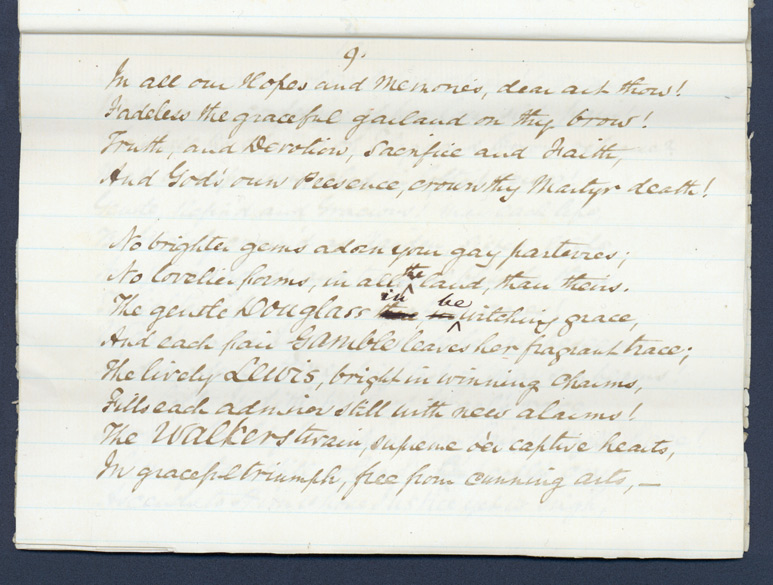 9.
In all our Hopes and Memories, dear art thou!
Fadeless the graceful garland on thy brow!
Truth, and Devotion, Sacrifice and Faith,
And God's own Presence, crown thy Martyr death!
No brighter gems adorn your gay parterres;
No lovelier forms, in all the land, than theirs.
The gentle Douglass in, bewitching grace,
And each fair Gamble leaves her fragrant trace;
The lively Lewis, bright in winning Charms,
Fills each admirer still with new alarms!
The Walkers twain, supreme o'er captive hearts,
In graceful triumph, free from cunning arts,—